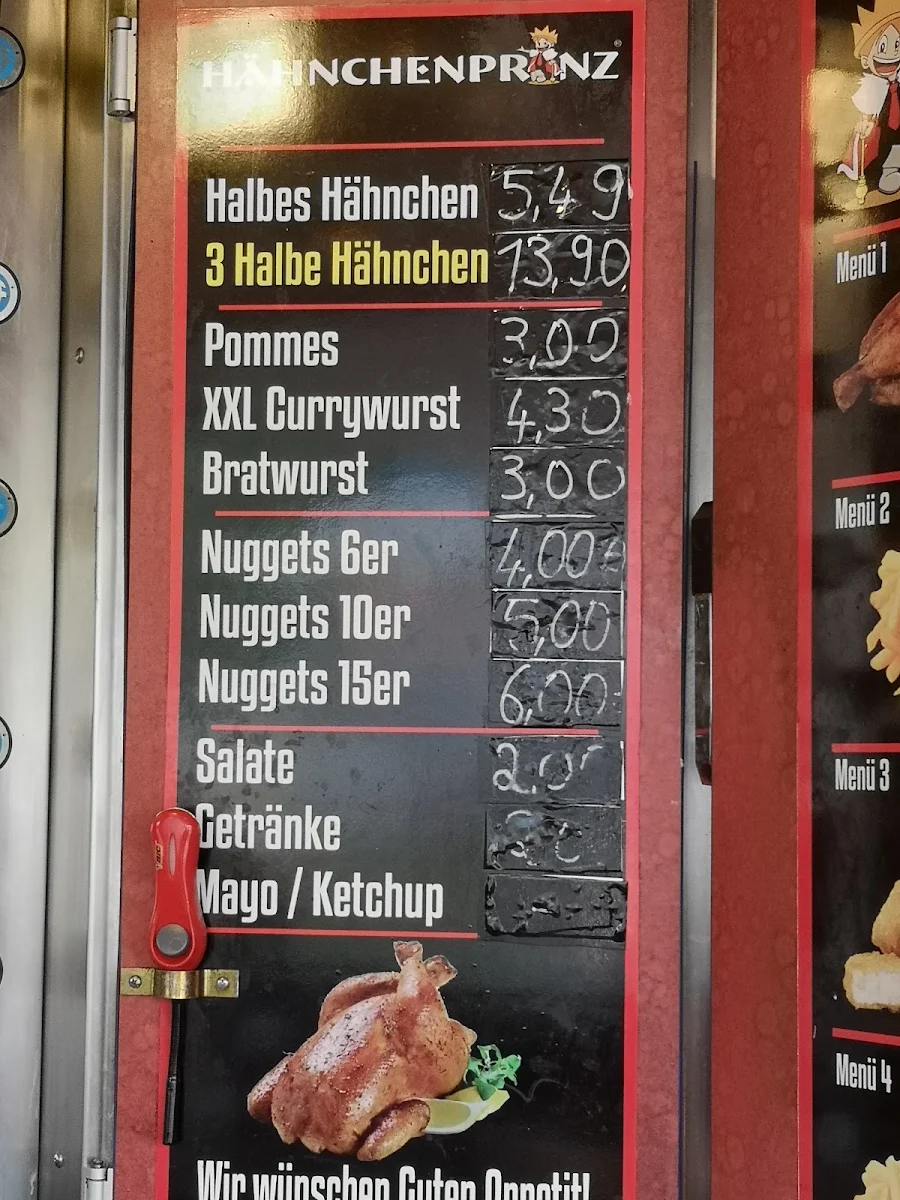 HÄHNCHENPRINZ®
Halbes Hähnchen 5,49
3 Halbe Hähnchen 13,90
Pommes 3,00
XXL Currywurst 4,30
Bratwurst 3,00
Nuggets 6er 4,00
Nuggets 10er 5,00
Nuggets 15er 6,00
Salate
Getränke
Mayo / Ketchup
Wir wünschen Guten Appetit!
Menü 1
Menü 2
Menü 3
Menü 4